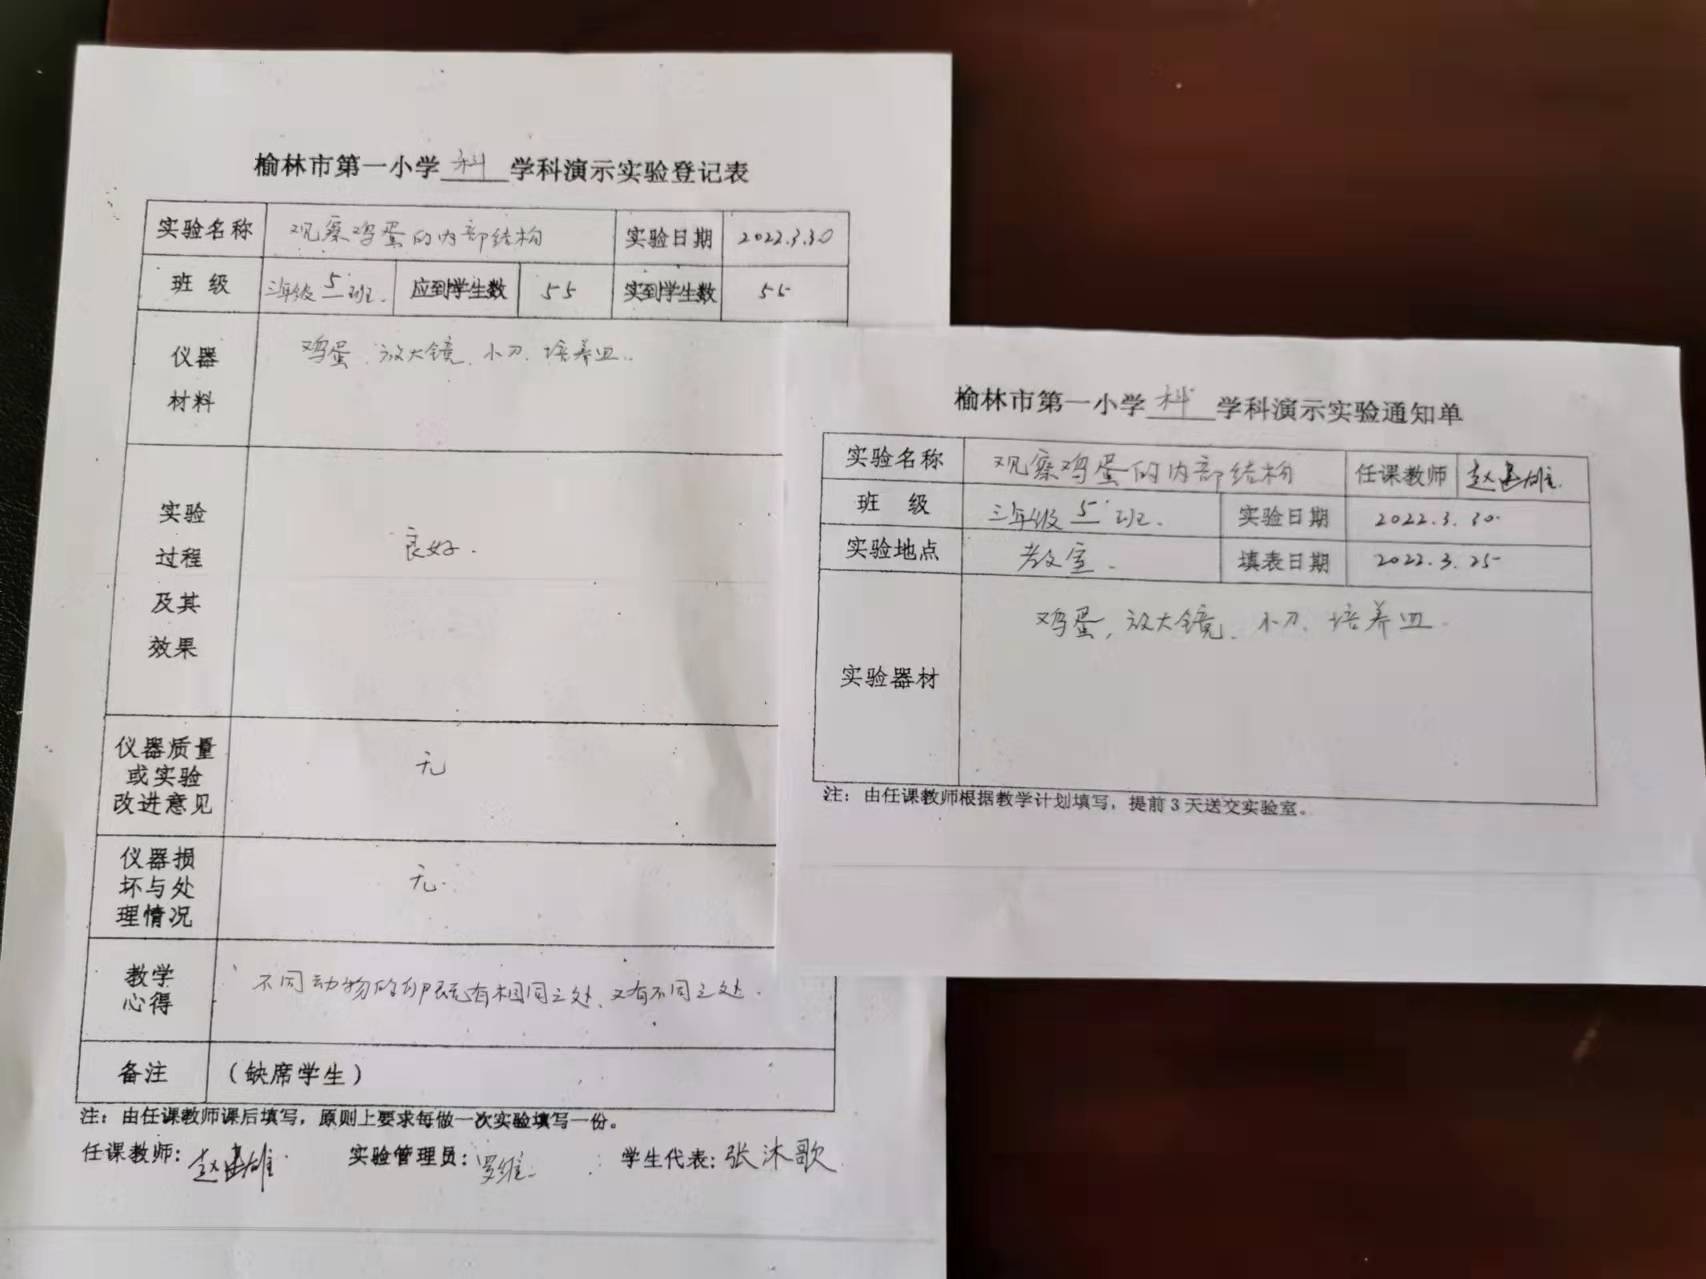 榆林市第一小学 科 学科演示实验登记表
实验名称 观察鸡蛋的内部结构 实验日期 2022.3.30
班 级 三年级 5 班. 应到学生数 55 实到学生数 55
仪器 鸡蛋、放大镜、小刀、培养皿.
材料
实验
过程
及其
效果
良好.
仪器质量
或实验
改进意见
无
仪器损
坏与处
理情况
无.
教学
心得
不同动物的卵既有相同之处、又有不同之处.
备注 (缺席学生)
注：由任课教师课后填写，原则上要求每做一次实验填写一份。
任课教师：赵雄 实验管理员：罗维 学生代表：张沐歌
榆林市第一小学 科 学科演示实验通知单
实验名称 观察鸡蛋的内部结构 任课教师 赵雄.
班 级 三年级 5 班. 实验日期 2022.3.30.
实验地点 教室. 填表日期 2022.3.25
实验器材 鸡蛋，放大镜、小刀、培养皿.
注：由任课教师根据教学计划填写，提前 3 天送交实验室。